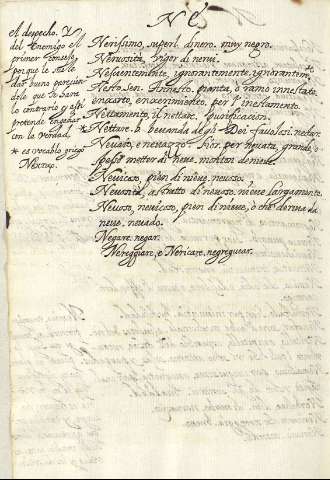 Ne
Al despecho. Y
del Enemigo el
primer Consejo,
porque le ha de
dar buena persua-
lo contrario y assi
pretende
con la Verdad,
* es vocablo griego
Nerissimo, superl. di nero. muy negro.
Neruosità, uigor di nerui.
Nescientemente, ignorantemente, ignorantem.te
Nesto. sen. Annesto. pianta, ò ramo innestato.
enxerto, enxerimiento. per l'inestamento.
Nettamento, il nettare. purificacion.
* Nettare. b. beuanda degli Dei fauolosi. nectar.
Neuaio, e neuazzo. Fior. per neuata, grande, o
spesso metter di neue, monton de nieue.
Neuicato, pien di nieue, neuoso.
Neuosità, astretto di neuoso. nieue largamente.
Neuoso, neuicoso, pien di nieue, ò che dorme da
neue. neuado.
Negare. negar.
Nereggiare, e Nericare, negreguear.